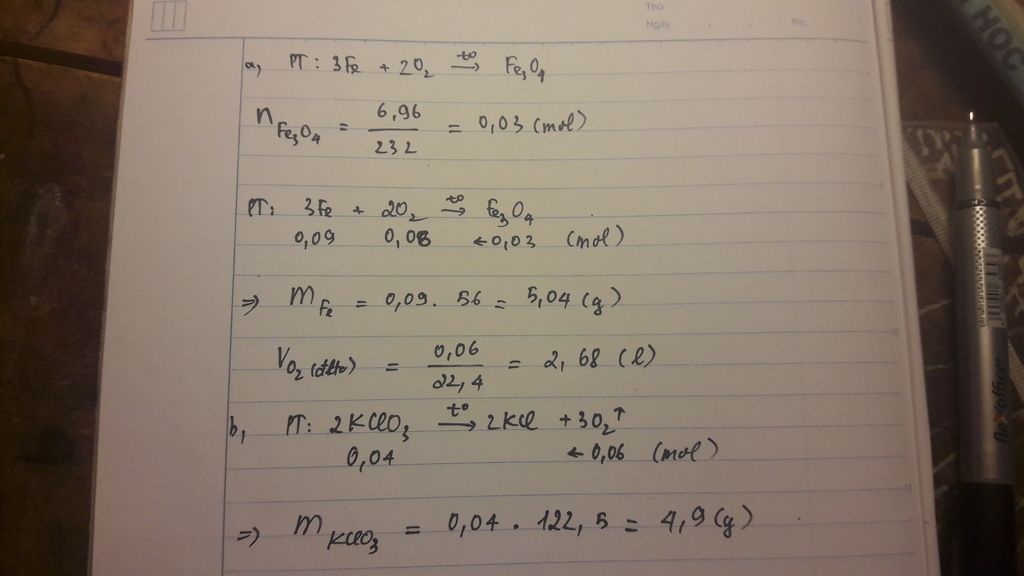 Thứ
Ngày . . No.
a, PT: 3Fe + 2O₂ →(t°) Fe₃O₄
n Fe₃O₄ = 6,96 / 232 = 0,03 (mol)
PT: 3Fe + 2O₂ →(t°) Fe₃O₄
0,09 0,06 ← 0,03 (mol)
⇒ m Fe = 0,09 . 56 = 5,04 (g)
V O₂ (đktc) = 0,06 / 22,4 = 2,68 (l)
b, PT: 2KClO₃ →(t°) 2KCl + 3O₂↑
0,04 ← 0,06 (mol)
⇒ m KClO₃ = 0,04 . 122,5 = 4,9 (g)
HỌC